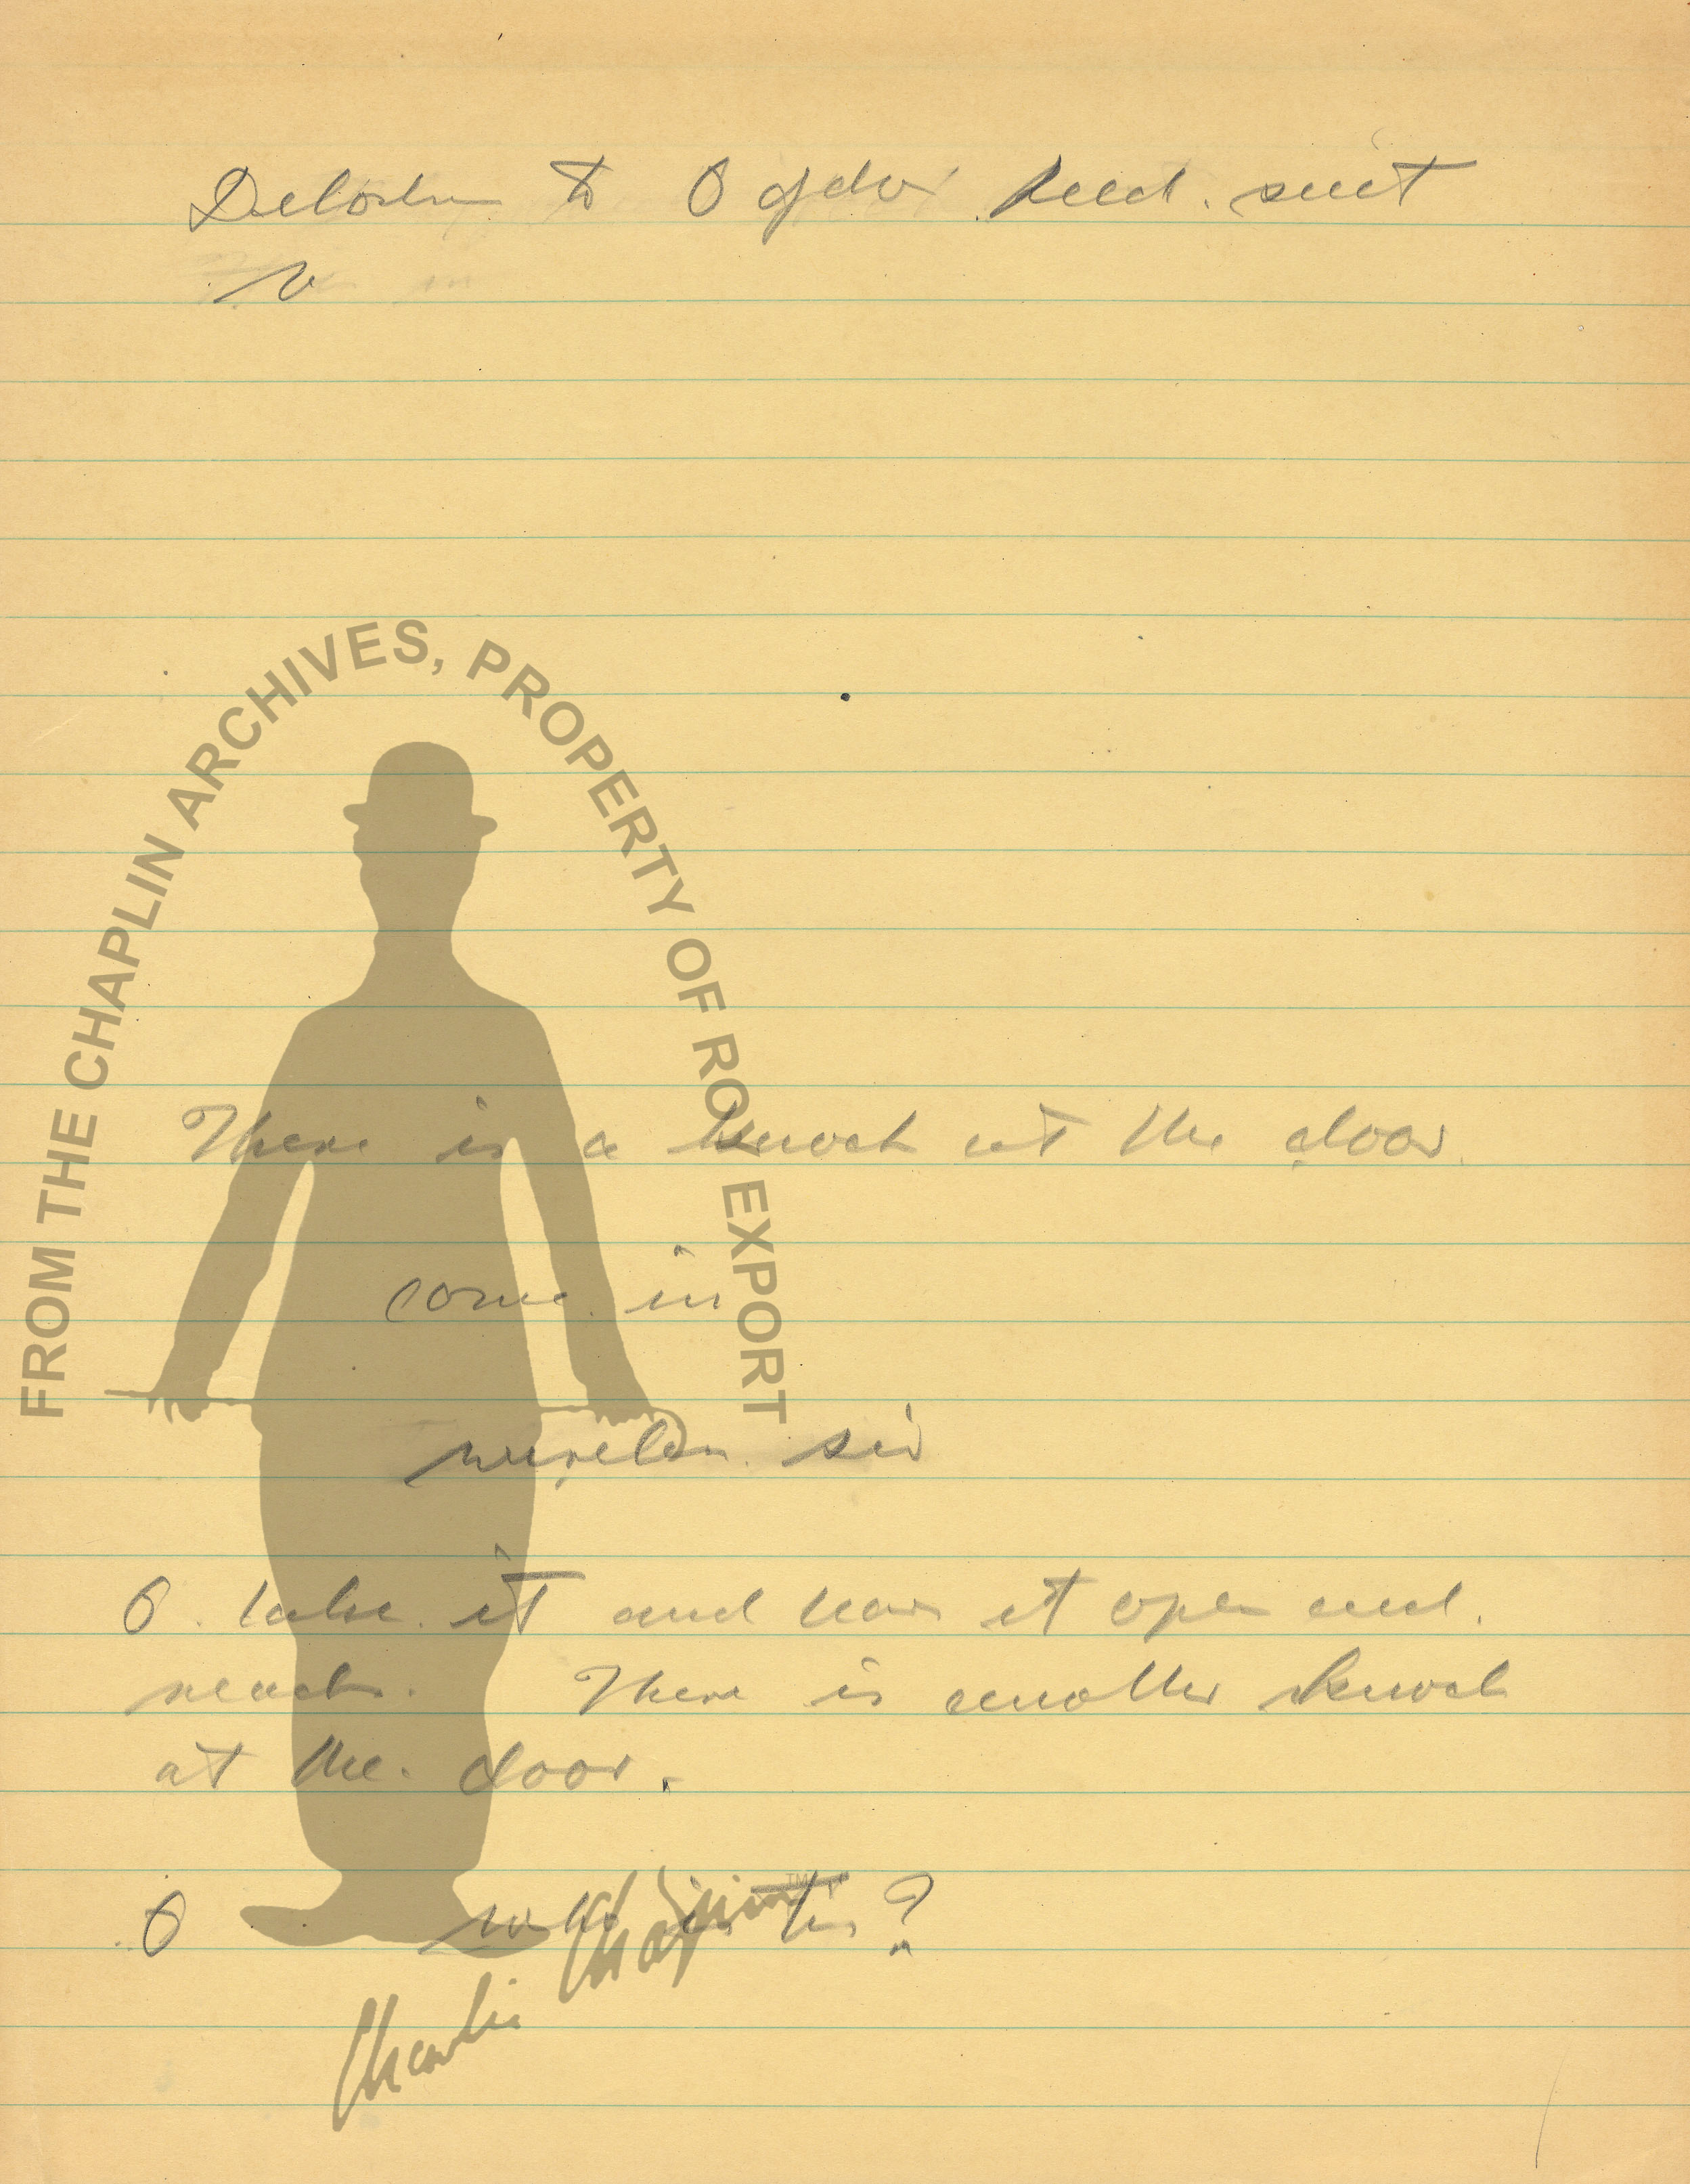 to O
There is a knock at the door
come in
sir
O. take. it and tear it open and.
reads. There is another knock
at the. door.
O who is
?
FROM THE CHAPLIN ARCHIVES, PROPERTY OF ROY EXPORT
Charlie Chaplin TM